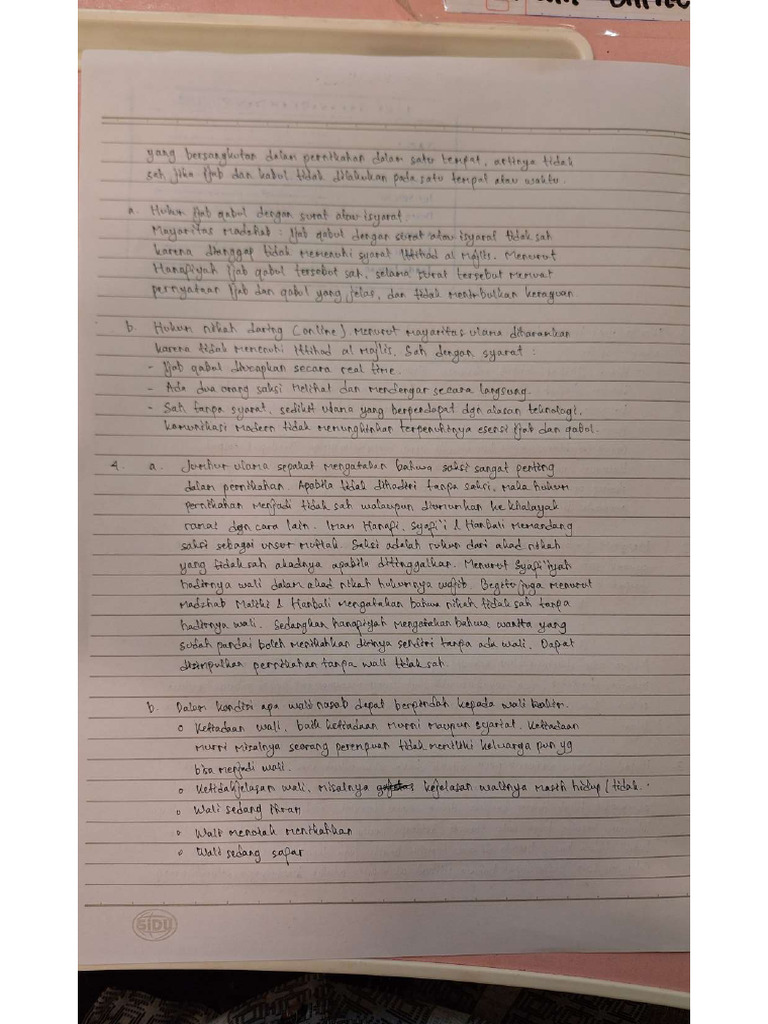 yang bersangkutan dalam pernikahan dalam satu tempat, artinya tidak
sah jika ijab dan kabul tidak dilakukan pada satu tempat atau waktu.
a. Hukum ijab qabul dengan surat atau isyarat.
Mayoritas Madzhab : ijab qabul dengan surat atau isyarat tidak sah
karena dianggap tidak memenuhi syarat Ittihad al Majlis. Menurut
Hanafiyah ijab qabul tersebut sah, selama surat tersebut memuat
pernyataan ijab dan qabul yang jelas, dan tidak menimbulkan keraguan.
b. Hukum nikah daring (online), menurut mayaritas ulama diharamkan
karena tidak memenuhi Ittihad al Majlis. Sah dengan syarat :
- Ijab qabul diucapkan secara real time.
- Ada dua orang saksi melihat dan mendengar secara langsung.
- Sah tanpa syarat, sedikit ulama yang berpendapat dgn alasan teknologi,
komunikasi modern tidak memungkinkan terpenuhinya esensi ijab dan qabul.
4. a. Jumhur ulama sepakat mengatakan bahwa saksi sangat penting
dalam pernikahan. Apabila tidak dihadiri tanpa saksi, maka hukum
pernikahan menjadi tidak sah walaupun diumumkan ke khalayak
ramai dgn cara lain. Imam Hanafi, Syafi'i & Hanbali memandang
saksi sebagai unsur mutlak. Saksi adalah rukun dari akad nikah
yang tidak sah akadnya apabila ditinggalkan. Menurut Syafi'iyah
hadirnya wali dalam akad nikah hukumnya wajib. Begitu juga menurut
Madzhab Maliki & Hanbali mengatakan bahwa nikah tidak sah tanpa
hadirnya wali. Sedangkan hanafiyah mengatakan bahwa wanita yang
sudah pandai boleh menikahkan dirinya sendiri tanpa ada wali. Dapat
disimpulkan pernikahan tanpa wali tidak sah.
b. Dalam kondisi apa wali nasab dapat berpindah kepada wali hakim.
o Ketiadaan wali, baik ketiadaan murni maupun syariat. Ketiadaan
murni misalnya seorang perempuan tidak memiliki keluarga pun yg
bisa menjadi wali.
o Ketidakjelasan wali, misalnya kejelasan walinya masih hidup / tidak.
o Wali sedang ihram
o Wali menolak menikahkan
o Wali sedang safar
SIDU